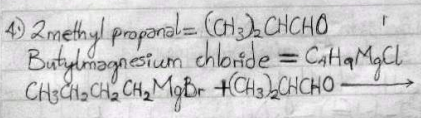 4) 2methyl propanal = (CH₃)₂CHCHO
Butylmagnesium chloride = C₄H₉MgCl
CH₃CH₂CH₂CH₂MgBr +(CH₃)₂CHCHO ⟶